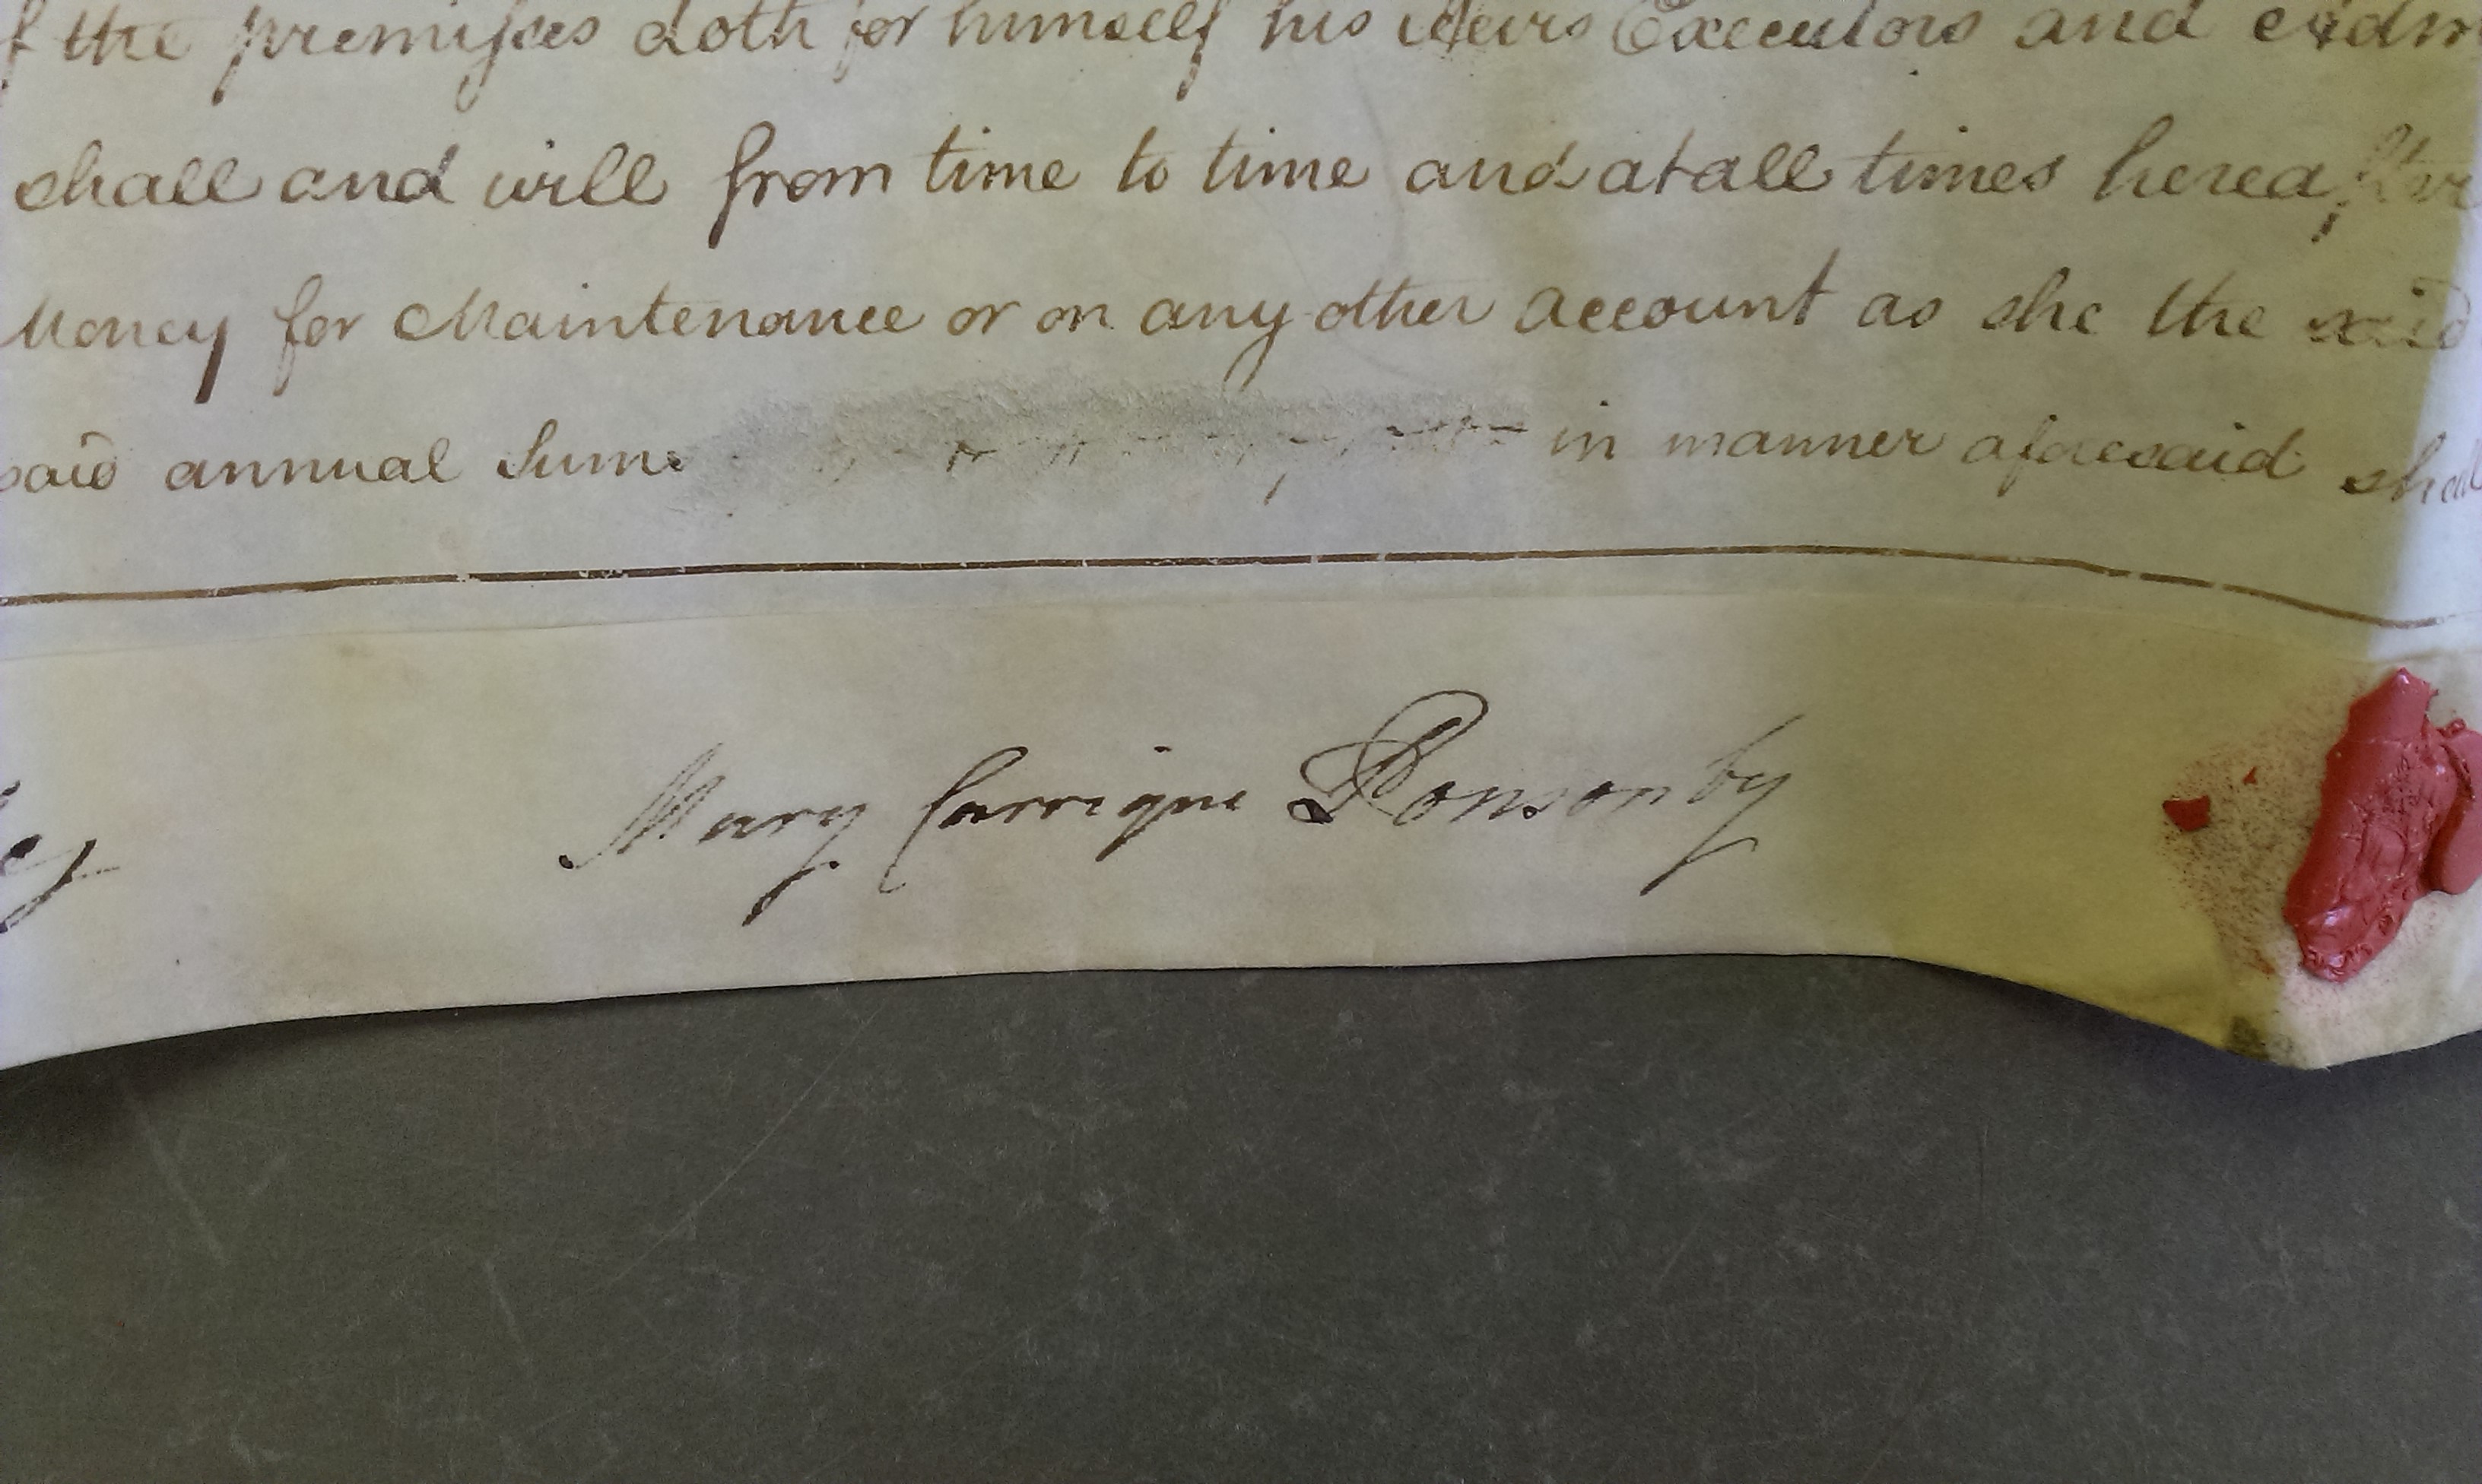 the premisses doth for himself his Heirs Executors and Adm
shall and will from time to time and at all times hereafter
Money for Maintenance or on any other account as she the said
said annual Sum in manner aforesaid shall
ey
Mary Carrique Ponsonby